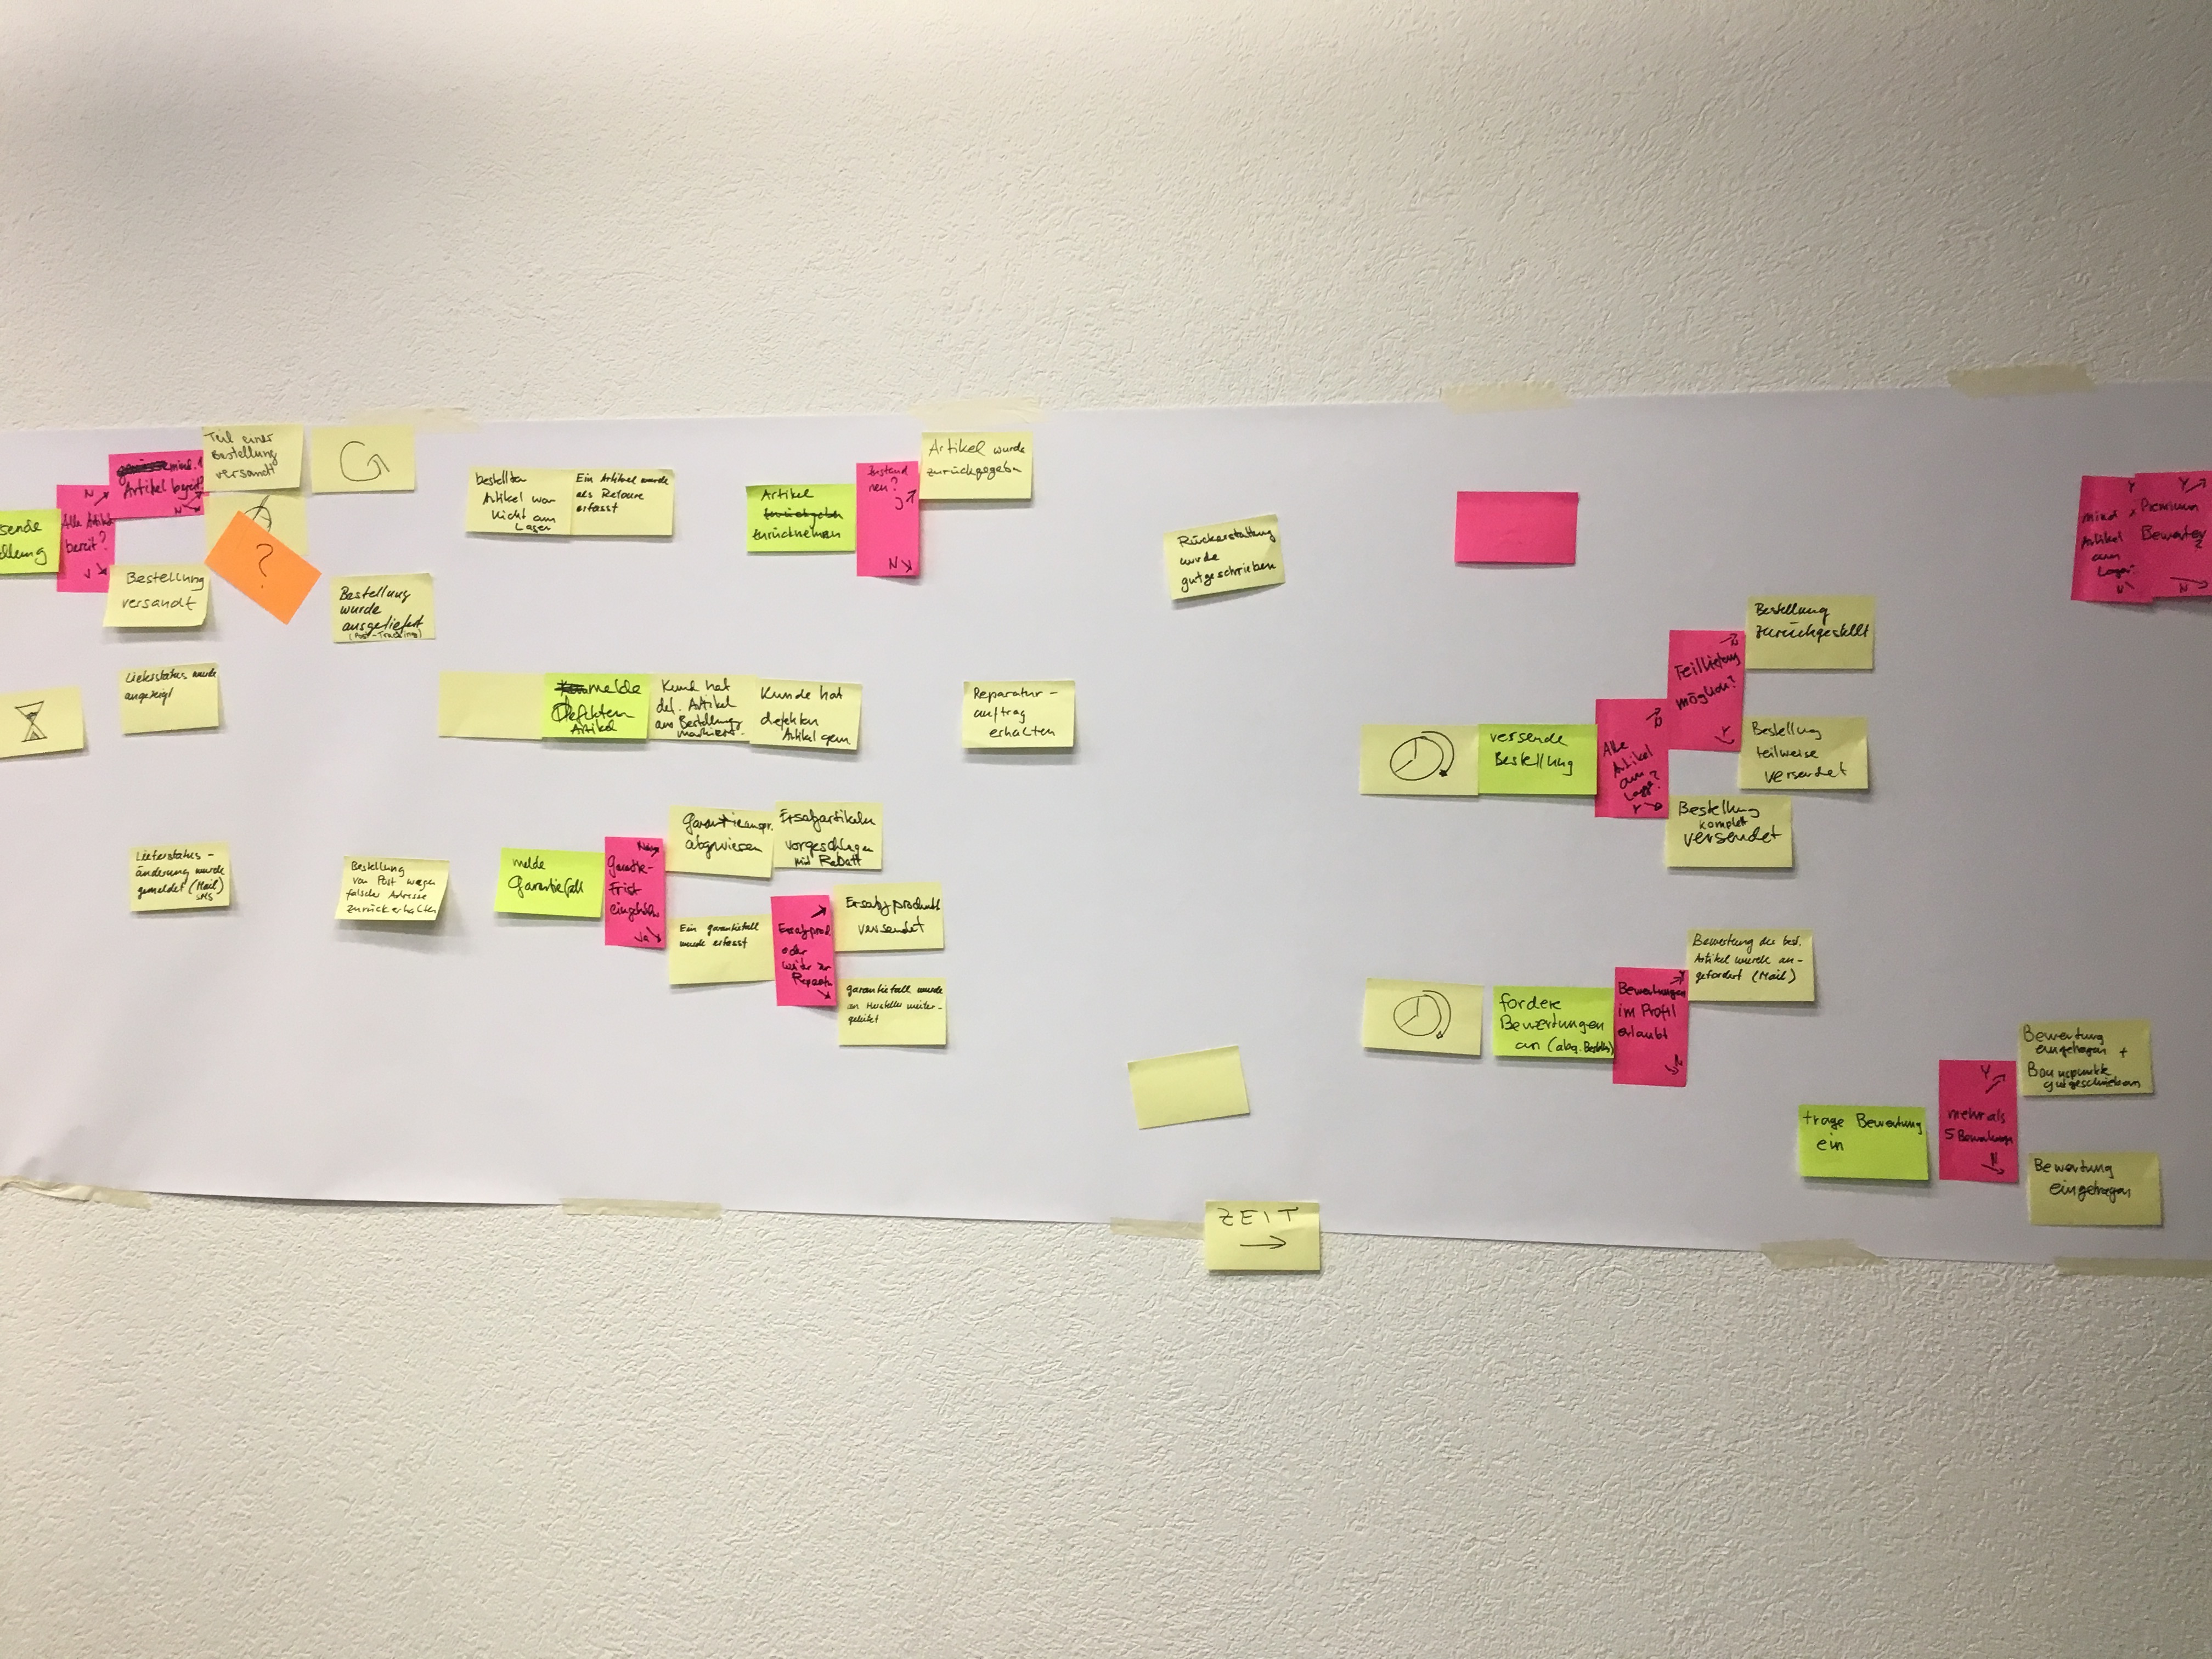 sende
N
Alle Artikel
bereit?
J
mind. 1
Artikel bereit?
N
Teil einer
Bestellung
versandt
?
Bestellung
versandt
Bestellung
wurde
ausgeliefert
(Post-Tracking)
bestellter
Artikel war
nicht am
Lager
Ein Artikel wurde
als Retoure
erfasst
Artikel
zurücknehmen
Zustand
neu?
J
N
Artikel wurde
zurückgegeben
Rückerstattung
wurde
gutgeschrieben
mind
Artikel
am
Lager?
N
Y
Premium
Bewerter
?
N
Lieferstatus wurde
angezeigt
melde
Defekten
Artikel
Kunde hat
def. Artikel
aus Bestellung
markiert.
Kunde hat
defekten
Artikel gem
Reparatur-
auftrag
erhalten
versende
Bestellung
Alle
Artikel
am
Lager?
Y
N
Teillieferung
möglich?
Y
Bestellung
zurückgestellt
Bestellung
teilweise
versendet
Bestellung
komplett
versendet
Lieferstatus-
änderung wurde
gemeldet (Mail)
SMS
Bestellung
von Post wegen
falscher Adresse
zurück erhalten
melde
Garantiefall
Nein
Garantie-
Frist
eingehalten
Ja
Garantieanspr.
abgewiesen
Ersatzartikeln
vorgeschlagen
mit Rabatt
Ein Garantiefall
wurde erfasst
Ersatzprod
oder
weiter zur
Reparatur
Ersatzprodukt
versendet
Garantiefall wurde
an Hersteller weiter-
geleitet
fordere
Bewertungen
an (abg. Bestell)
Bewertungen
im Profil
erlaubt
Bewertung der best.
Artikel wurde an-
gefordert (Mail)
trage Bewertung
ein
Y
mehr als
5 Bewertungen
N
Bewertung
eingetragen +
Bonuspunkte
gutgeschrieben
Bewertung
eingetragen
ZEIT